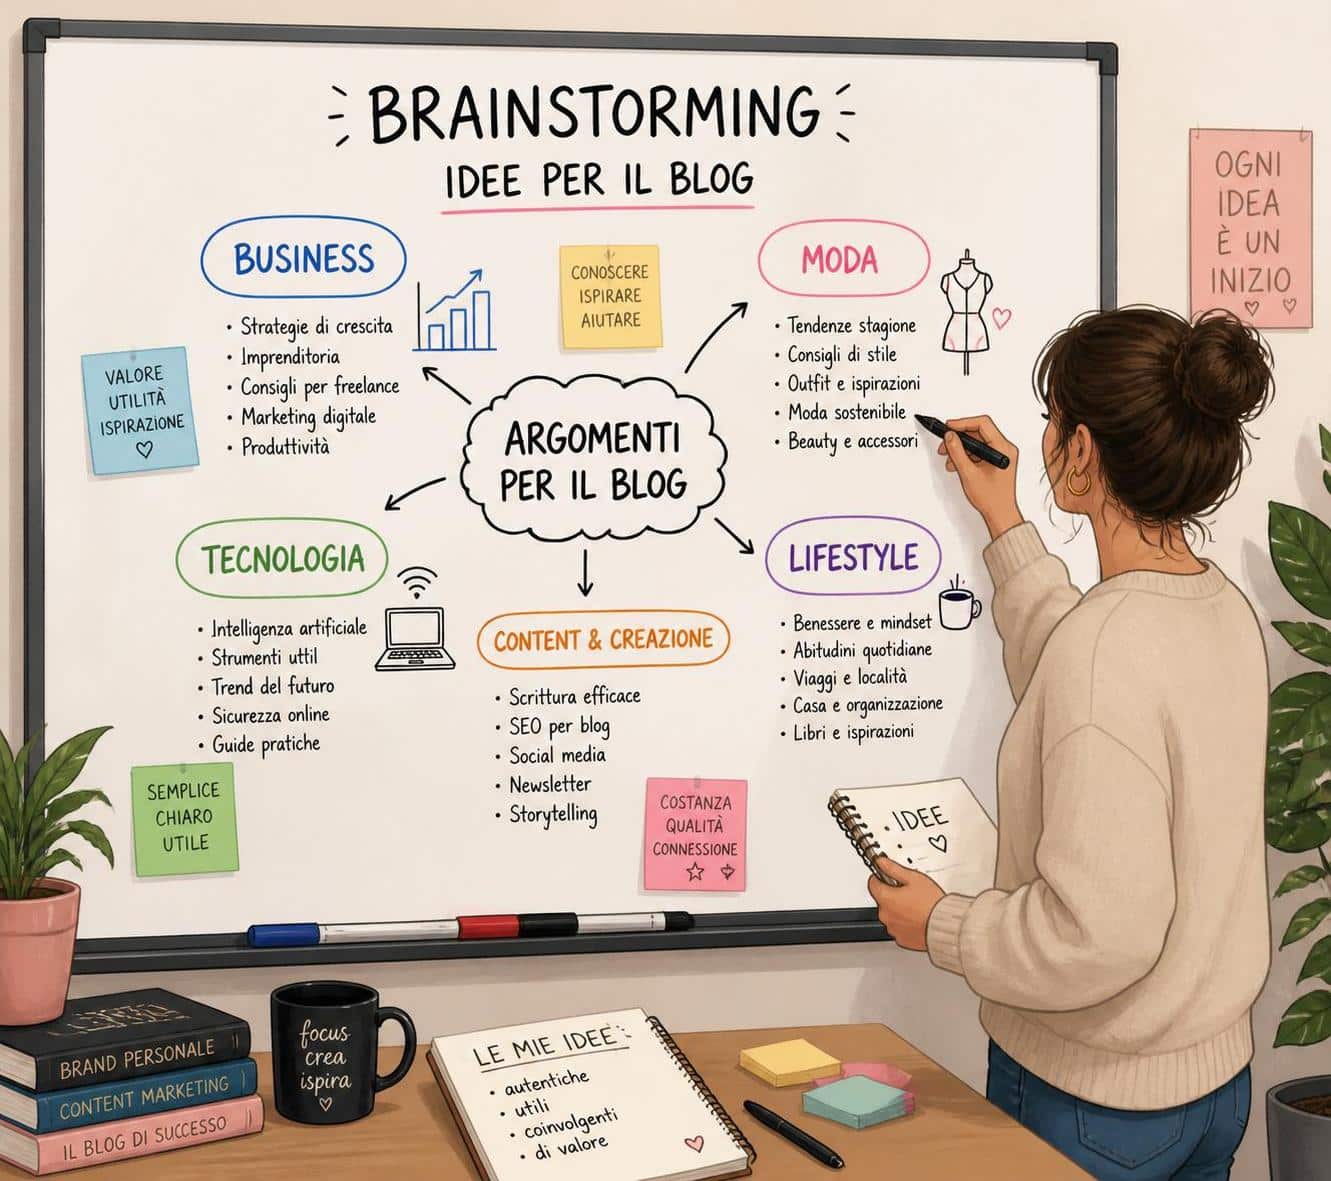 BRAINSTORMING
IDEE PER IL BLOG
BUSINESS
• Strategie di crescita
• Imprenditoria
• Consigli per freelance
• Marketing digitale
• Produttività
CONOSCERE
ISPIRARE
AIUTARE
MODA
• Tendenze stagione
• Consigli di stile
• Outfit e ispirazioni
• Moda sostenibile
• Beauty e accessori
OGNI
IDEA
È UN
INIZIO
VALORE
UTILITÀ
ISPIRAZIONE
ARGOMENTI
PER IL BLOG
TECNOLOGIA
• Intelligenza artificiale
• Strumenti uttil
• Trend del futuro
• Sicurezza online
• Guide pratiche
CONTENT & CREAZIONE
• Scrittura efficace
• SEO per blog
• Social media
• Newsletter
• Storytelling
LIFESTYLE
• Benessere e mindset
• Abitudini quotidiane
• Viaggi e località
• Casa e organizzazione
• Libri e ispirazioni
SEMPLICE
CHIARO
UTILE
COSTANZA
QUALITÀ
CONNESSIONE
• IDEE
BRAND PERSONALE
CONTENT MARKETING
IL BLOG DI SUCCESSO
focus
crea
ispira
LE MIE IDEE
• autentiche
• utili
• coinvolgenti
• di valore